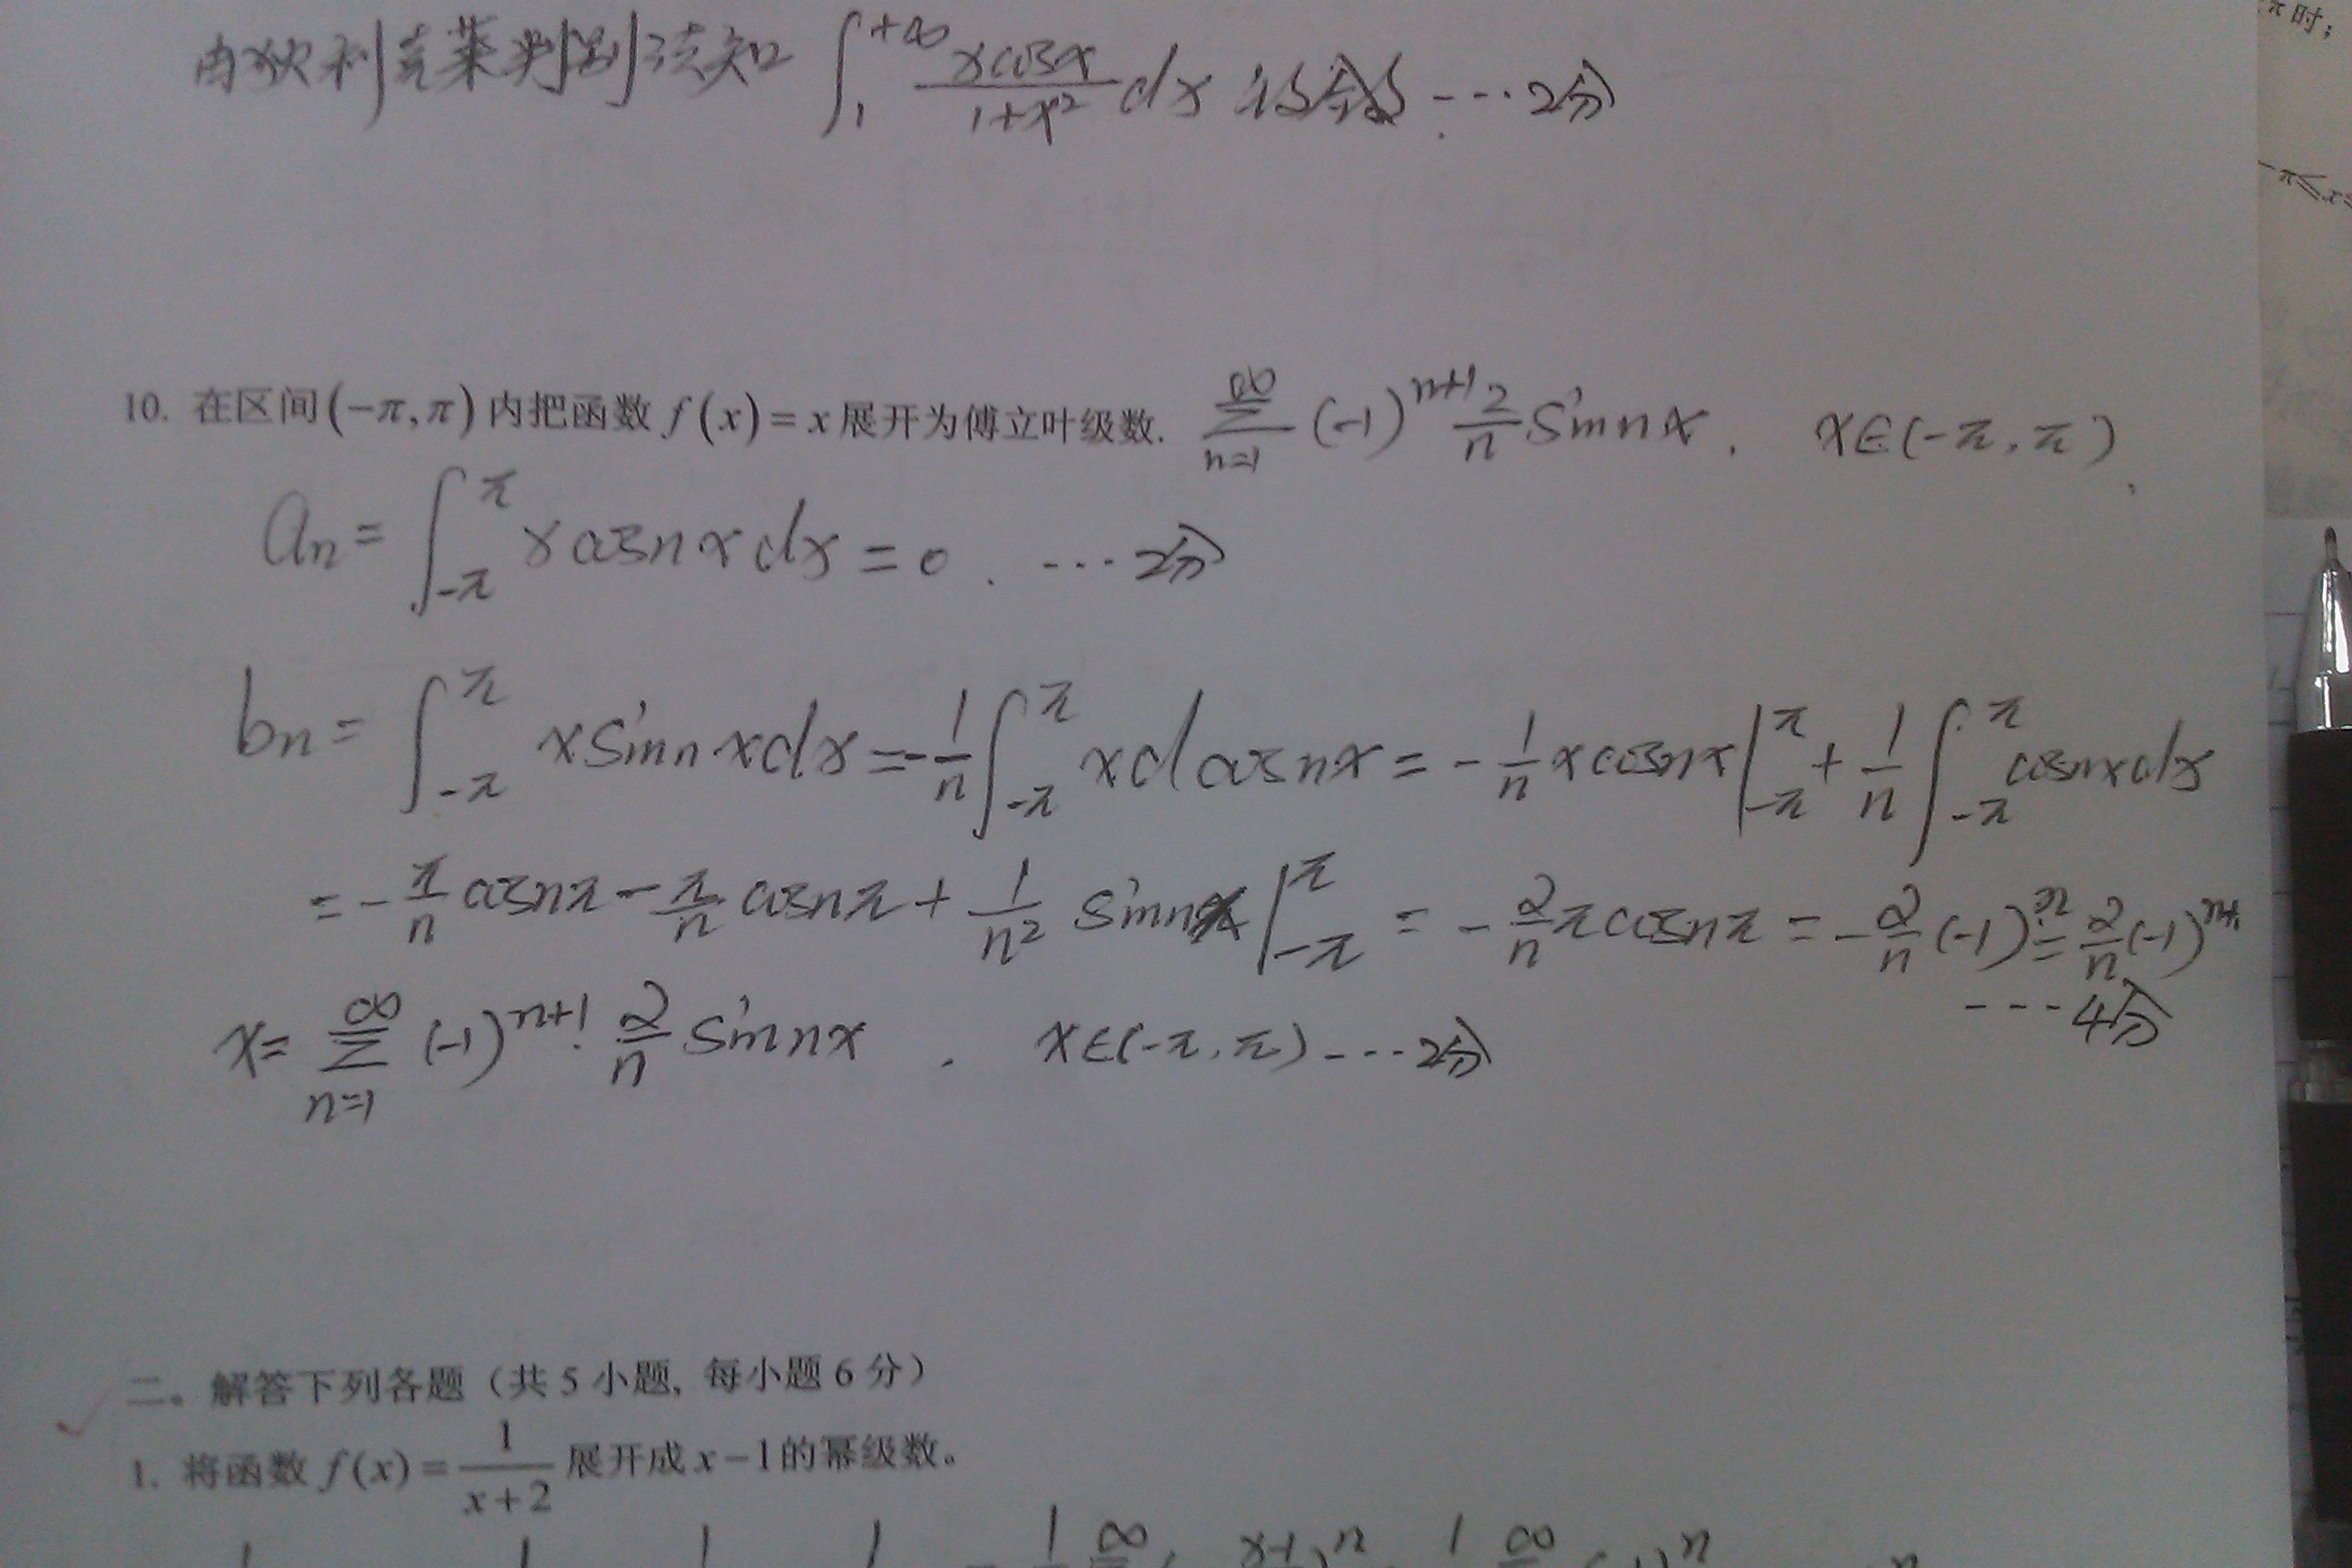 由狄利克莱判别法知 ∫₁^{+∞} xcosx/(1+x²) dx 收敛 ---2分
π时;
-π≤x≤
10. 在区间(-π,π)内把函数 f(x)=x 展开为傅立叶级数. ∑_{n=1}^{∞} (-1)^{n+1} 2/n sin nx . x∈(-π,π).
aₙ= ∫_{-π}^{π} x cosnx dx = 0 . ---2分
bₙ= ∫_{-π}^{π} x sin nx dx = -1/n ∫_{-π}^{π} x d cosnx = -1/n x cosnx |_{-π}^{π} + 1/n ∫_{-π}^{π} cosnx dx
= -π/n cosnπ - π/n cosnπ + 1/n² sin nx |_{-π}^{π} = -2/n π cosnπ = -2/n (-1)^n = 2/n (-1)^{n+1}
---4分
x= ∑_{n=1}^{∞} (-1)^{n+1} · 2/n sin nx . x∈(-π,π) ---2分
二。解答下列各题（共 5 小题, 每小题 6 分）
1. 将函数 f(x)= 1/(x+2) 展开成 x-1的幂级数。